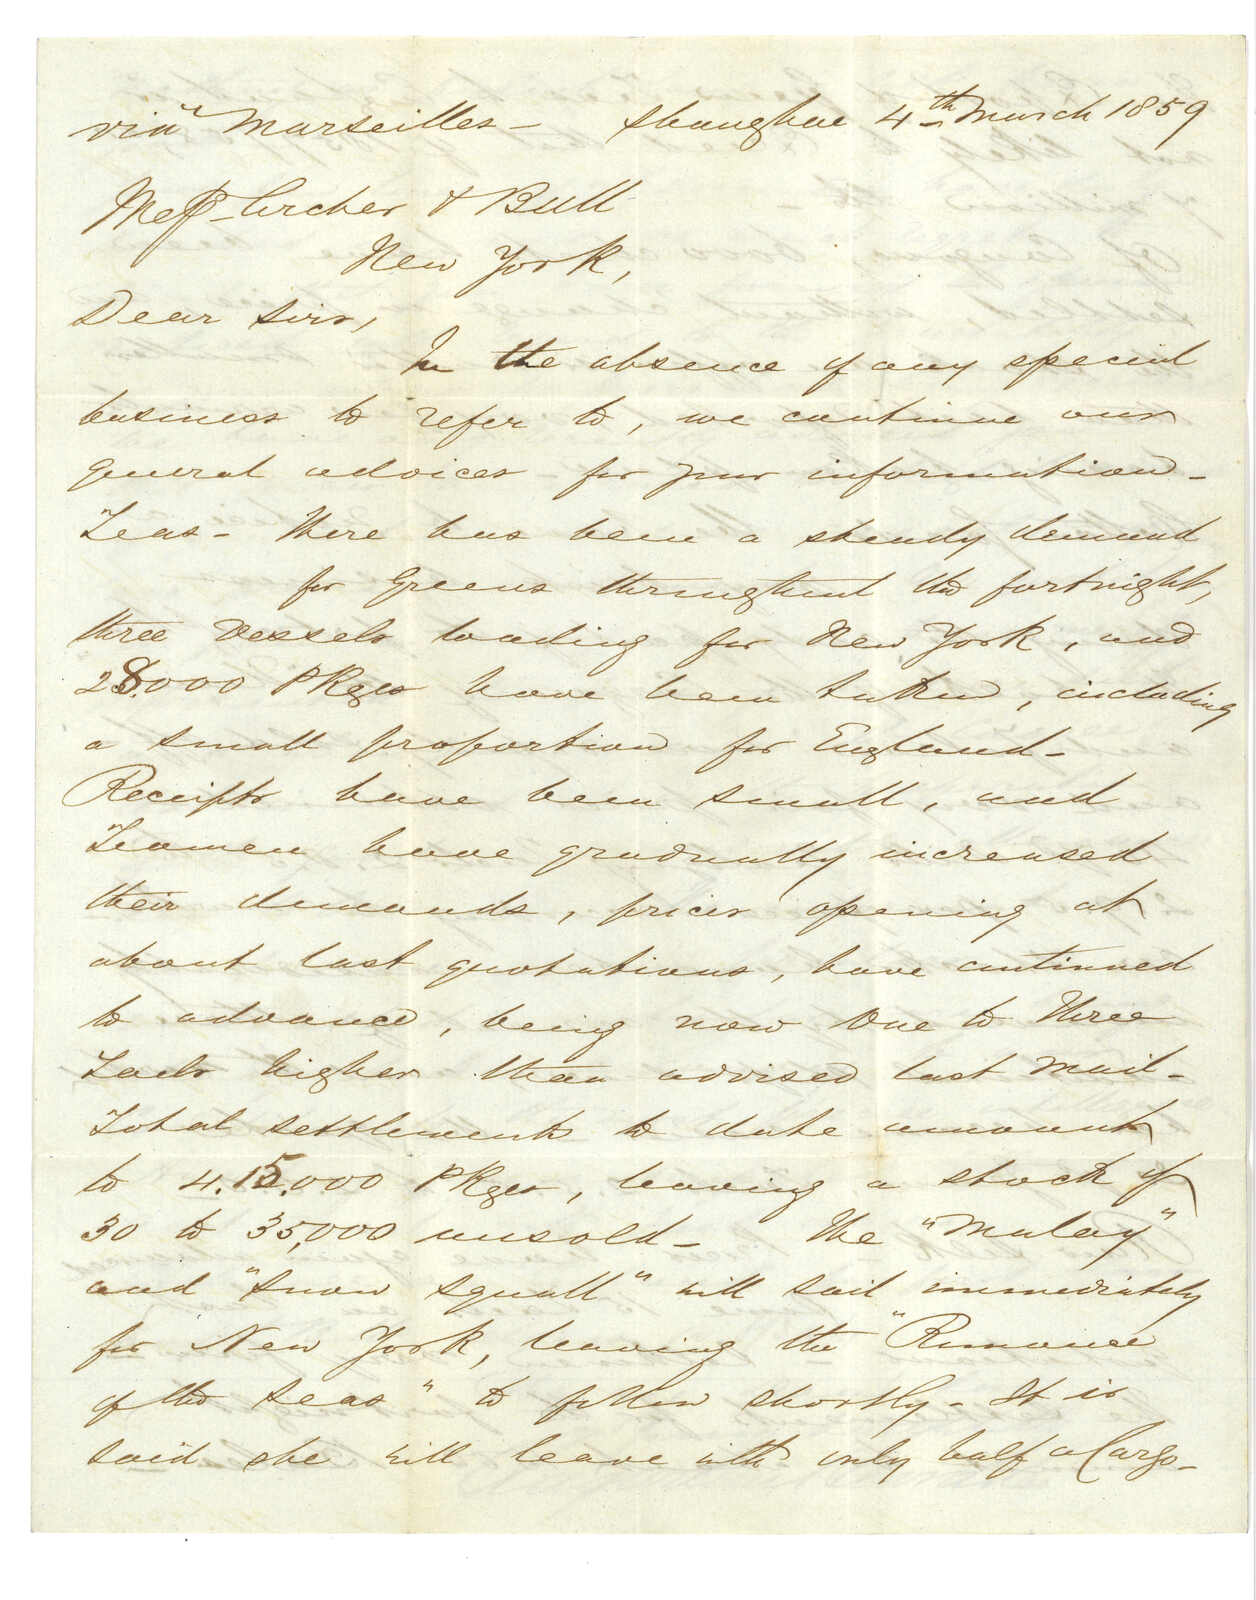 via Marseilles - Shanghae 4th March 1859
Mess Archer & Bull
New York,
Dear Sirs,
In the absence of any special
business to refer to, we continue our
general advices for your information -
Teas - There has been a steady demand
for Greens throughout the fortnight,
three Vessels loading for New York, and
28.000 Pkges have been taken, including
a small proportion for England -
Receipts have been small, and
Teamen have gradually increased
their demands, prices opening at
about last quotations, have continued
to advance, being now One to Three
Taels higher than advised last mail -
Total settlements to date amount
to 4.15.000 Pkges, leaving a stock of
30 to 35,000 unsold - The "Malay"
and "Snow Squall" will sail immediately
for New York, leaving the "Romance
of the Seas" to follow shortly - It is
said she will leave with only half a Cargo -